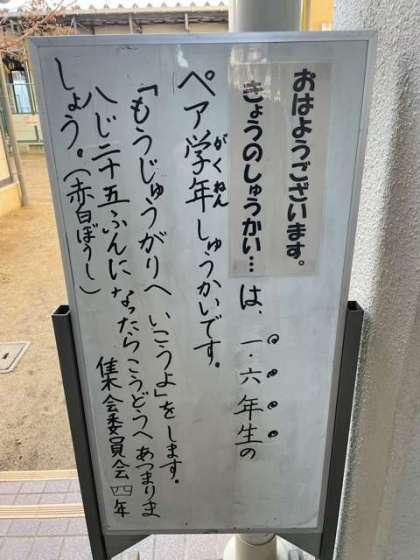 おはようございます。
きょうのしゅうかい…は、一・六年生の
がくねん
ペア学年しゅうかいです。
「もうじゅうがりへ いこうよ」をします。
八じ二十五ふんになったらこうどうへあつまりま
しょう。(赤白ぼうし)
集会委員会 四年